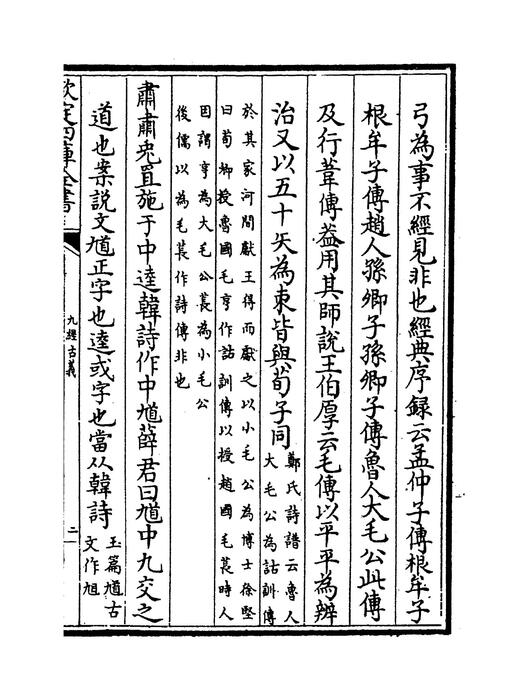 弓為事不經見非也經典序録云孟仲子傳根牟子
根牟子傳趙人孫卿子孫卿子傳魯人大毛公此傳
及行葦傳葢用其師説王伯厚云毛傳以平平為辨
治又以五十矢為束皆與荀子同鄭氏詩譜云魯人
大毛公為詁訓傳
於其家河間獻王得而獻之以小毛公為博士徐堅
曰荀卿授魯國毛亨作詁訓傳以授趙國毛萇時人
因謂亨為大毛公萇為小毛公
後儒以為毛萇作詩傳非也
肅肅兎罝施于中逵韓詩作中馗薛君曰馗中九交之
道也案説文馗正字也逵或字也當从韓詩玉篇馗古
文作𡴆
欽定四庫全書
九經古義
二